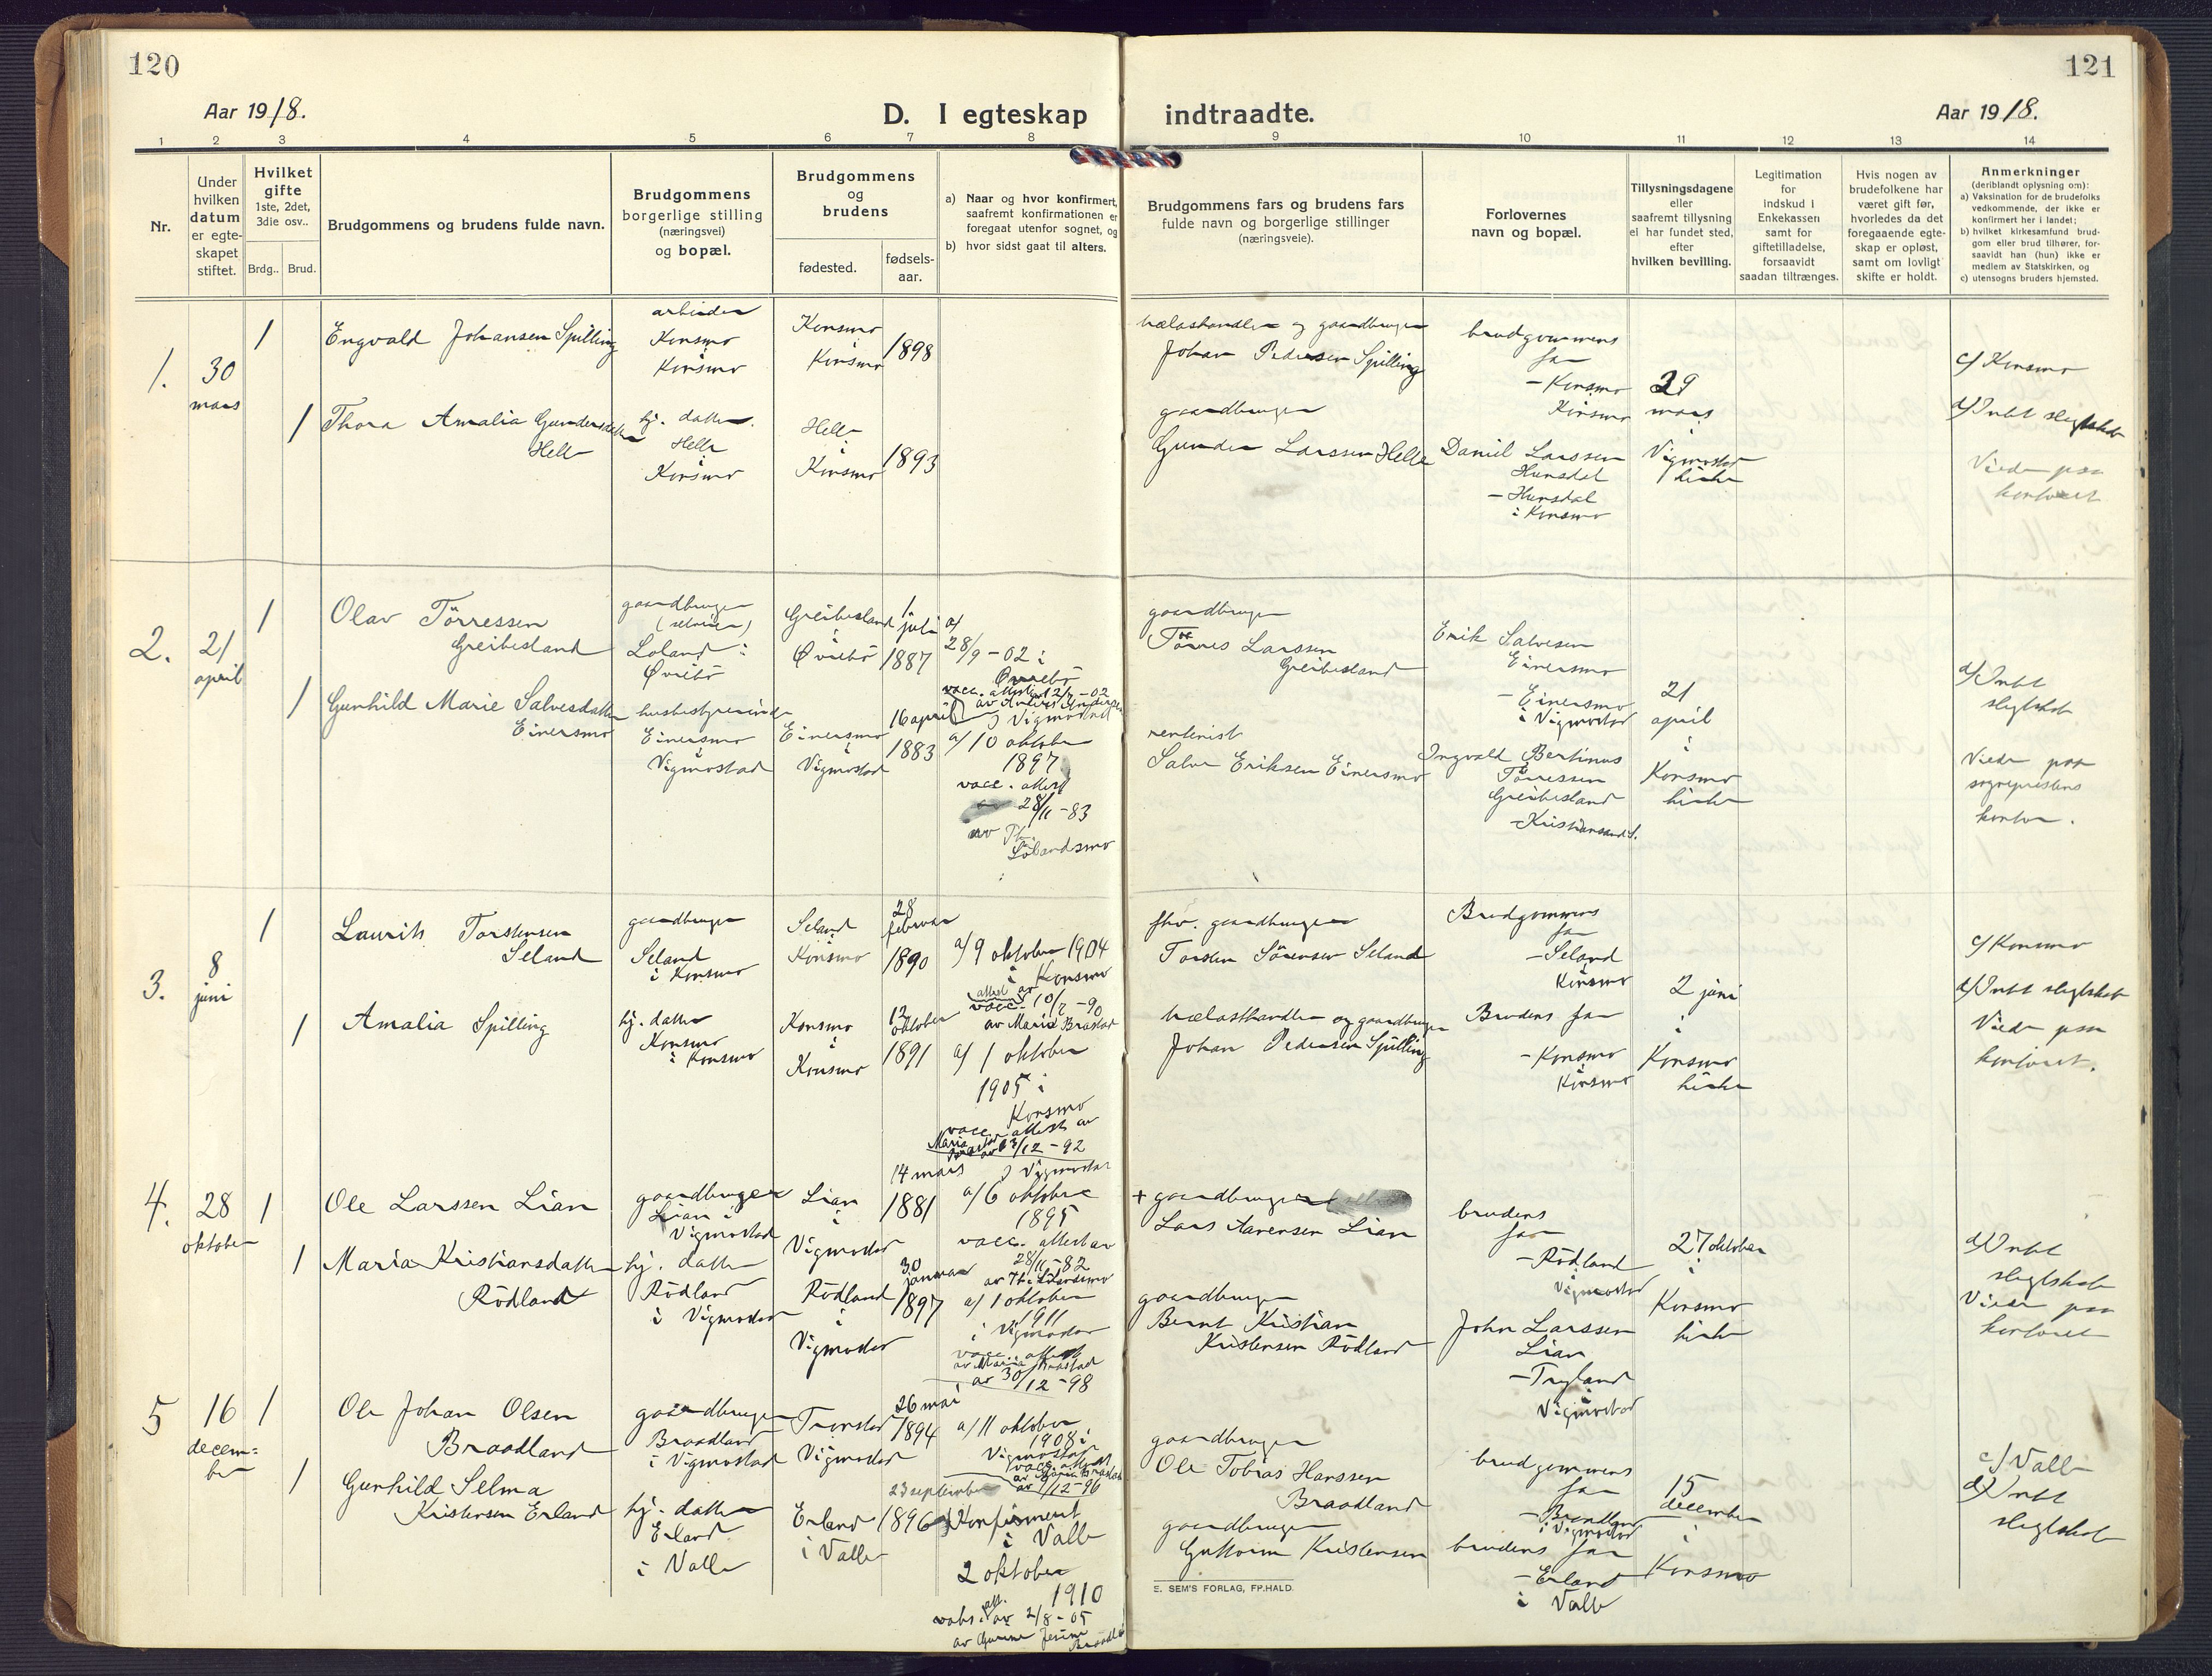 120
Aar 1918.
D. I egteskap
1 2 3 4 5 6 7 8
Nr.
Under
hvilken
datum
er egte-
skapet
stiftet.
Hvilket
gifte
1ste, 2det,
3die osv..
Brdg.. Brud.
Brudgommens og brudens fulde navn.
Brudgommens
borgerlige stilling
(næringsvei)
og bopæl.
Brudgommens
og
brudens
fødested.
fødsels-
aar.
a) Naar og hvor konfirmert,
saafremt konfirmationen er
foregaat utenfor sognet, og
b) hvor sidst gaat til alters.
1.
30
mars
1
Engvald Johansen Spilling
arbeider
Konsmo
i
Konsmo
Konsmo
i
Konsmo
1898
1
Thora Amalia Gundersdatter
Helle
hj. datter.
Helle
i
Konsmo
Helle
i
Konsmo
1893
2.
21
april
1
Olav Törressen
Greibesland
gaardbruger
(selveier)
Loland i
Øvrebö
Greibesland
i
Øvrebö
1
juli
1887
a/
28/9 - 02 i
Øvrebö
vacc. attest 12/7 - 02
1
Gunhild Marie Salvesdatter
Einersmo
husbestyrerinde
Einersmo
i
Vigmostad
Einersmo
i
Vigmostad
16 april
1883
i Vigmostad
a/ 10 oktober
1897
vacc. attest
28/11 - 83
av Th.
Lölandsmo
3.
8
juni
1
Laurits Torstensen
Seland
gaardbruger
Seland
i Konsmo
Seland
i
Konsmo
28
februar
1890
a/ 9 oktober 1904
i Konsmo
attest av
vacc. 10/7 - 90
av Maria Brastad
1
Amalia Spilling
hj. datter
Konsmo
i Konsmo
Konsmo
i
Konsmo
12
oktober
1891
a/ 1 oktober
1905 i
Konsmo
vacc. attest av
Maria
Brastad av 13/12 - 92
4.
28
oktober
1
Ole Larssen Lian
gaardbruger
Lian i
Vigmostad
Lian
i
Vigmostad
14 mars
1881
i Vigmostad
a/ 6 oktobre
1895
vacc. attest av
28/11 - 82
av Th. Lölandsmo
1
Maria Kristiansdatter
Rödland
hj. datter
Rödland
i Vigmostad
Rödland
i
Vigmostad
30
januar
1897
a/ 1 oktober
1911
i Vigmostad
vacc. attest
av Maria Brastad
av 30/12 - 98
5
16
decem=
ber
1
Ole Johan Olsen
Braadland
gaardbruger
Braadland
i Vigmostad
Tronstad
Vigmostad
26 mai
1894
a/ 11 oktober
1908 i
Vigmostad
vacc. attest
av Maria Brastad
1
Gunhild Selma
Kristensen Erland
hj. datter
Erland
i Valle
Erland
i Valle
23 september
1896
Konfirmert
i Valle
2 oktober
1910
att.
av 2/8 - 05
av Gurine Jesine
Braadland
121
indtraadte.
Aar 1918.
9 10 11 12 13 14
Brudgommens fars og brudens fars
fulde navn og borgerlige stillinger
(næringsveie).
Forlovernes
navn og bopæl.
Tillysningsdagene
eller
saafremt tillysning
ei har fundet sted,
efter
hvilken bevilling.
Legitimation
for
indskud i
Enkekassen
samt for
giftetilladelse,
forsaavidt
saadan tiltrænges.
Hvis nogen av
brudefolkene har
været gift før,
hvorledes da det
foregaaende egte-
skap er opløst,
samt om lovligt
skifte er holdt.
Anmerkninger
(deriblandt oplysning om):
a) Vaksination for de brudefolks
vedkommende, der ikke er
konfirmert her i landet;
b) hvilket kirkesamfund brud-
gom eller brud tilhører, for-
saavidt han (hun) ikke er
medlem av Statskirken, og
c) utensogns bruders hjemsted.
trælasthandler og gaardbruger
Johan Pedersen Spilling
brudgommens
far
- Konsmo
i
Konsmo
29
mars
i
Vigmostad
kirke
c/ Konsmo
d/ Intet slegtskab
Viede paa
kontoret
gaardbruger
Gunder Larssen Helle
Daniel Larssen
Hunsdal
- Hunsdal
i Konsmo
gaardbruger
Törres Larssen
Greibesland
Erik Salvesen
Einersmo
- Einersmo
i Vigmostad
21
april
i
Konsmo
kirke
d/ Intet
slegtskab
Viede paa
sogneprestens
kontor.
rentenist
Salve Eriksen Einersmo
Ingvald Bertinus
Törressen
Greibesland
- Kristiansand S.
fhv. gaardbruger
Torsten Sörensen Seland
Brudgommens
far
- Seland
i
Konsmo
2 juni
i
Konsmo
kirke
c/ Konsmo
d/ Intet slegtskab
Viede paa
kontoret.
trælasthandler og gaardbruger
Johan Pedersen Spilling
Brudens far
- Konsmo
i
Konsmo
+ gaardbruger
Lars Aanensen Lian
brudens
far
- Rödland
i
Vigmostad
27 oktober
i
Konsmo
kirke
d/ Intet
slegtskab
Viede paa
kontoret
gaardbruger
Bernt Kristian
Kristensen Rödland
John Larssen
Lian
- Trygland
i
Vigmostad
gaardbruger
Ole Tobias Hanssen
Braadland
brudgommens
far
- Braadland
i Vigmostad
15
december
i
Konsmo
c/ Valle
d/ Intet
slegtskab
gaardbruger
Guttorm Kristensen
brudens far
- Erland
i Valle
E. SEM'S FORLAG, FP.HALD.